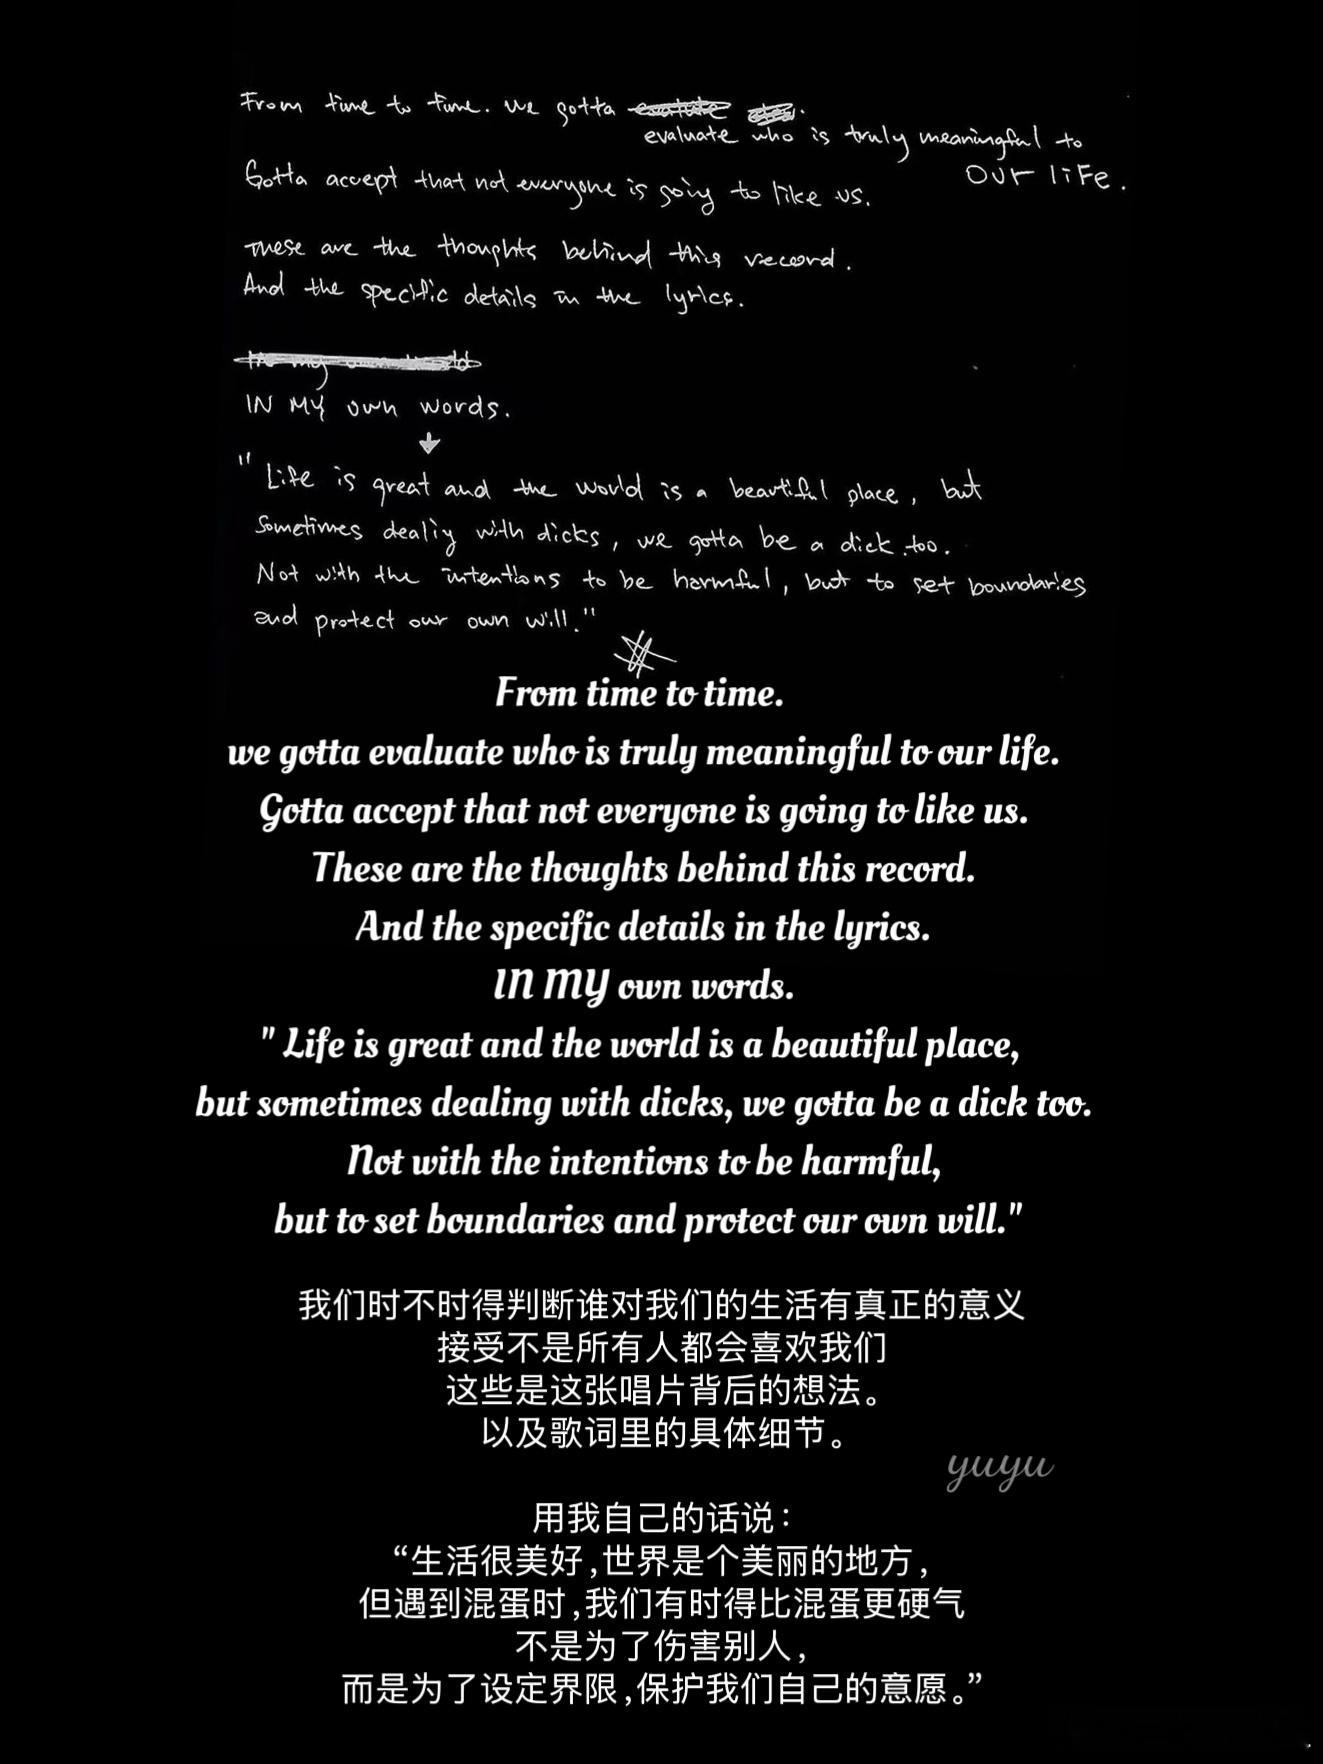 From time to time. we gotta
evaluate who is truly meaningful to
our life.
Gotta accept that not everyone is going to like us.
These are the thoughts behind this record.
And the specific details in the lyrics.
IN MY own words.
"Life is great and the world is a beautiful place, but
sometimes dealiy with dicks, we gotta be a dick too.
Not with the intentions to be harmful, but to set boundaries
and protect our own will."
From time to time.
we gotta evaluate who is truly meaningful to our life.
Gotta accept that not everyone is going to like us.
These are the thoughts behind this record.
And the specific details in the lyrics.
IN MY own words.
" Life is great and the world is a beautiful place,
but sometimes dealing with dicks, we gotta be a dick too.
Not with the intentions to be harmful,
but to set boundaries and protect our own will."
我们时不时得判断谁对我们的生活有真正的意义
接受不是所有人都会喜欢我们
这些是这张唱片背后的想法。
以及歌词里的具体细节。
yuyu
用我自己的话说：
“生活很美好,世界是个美丽的地方，
但遇到混蛋时,我们有时得比混蛋更硬气
不是为了伤害别人，
而是为了设定界限,保护我们自己的意愿。”